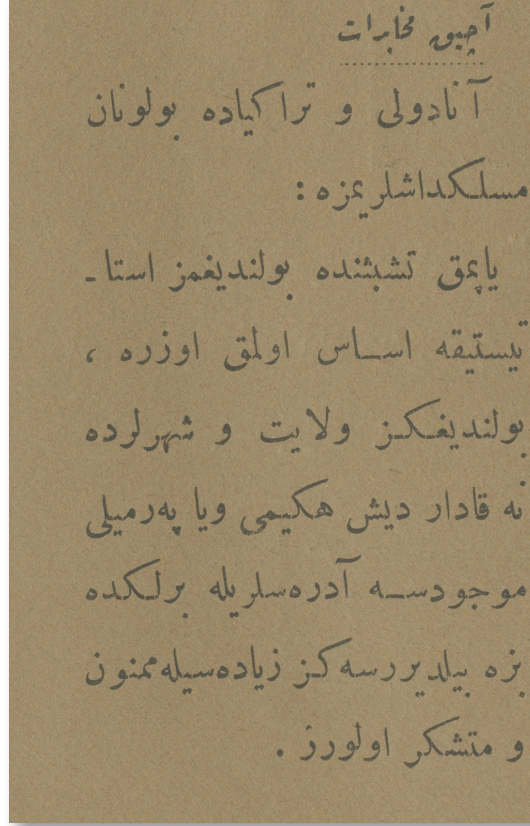 آچیق مخابرات
آنادولی و تراکیاده بولونان
مسلکداشلریمزه :
یاپمق تشبثنده بولندیغمز استا ـ
تیستیقه اســاس اولمق اوزره ،
بولندیغکـز ولایت و شهرلرده
نه قادار دیش هکیمی ویا پەرمیلی
موجودســه آدرەسلریله برلـکده
بزه بیلدیررسەکـز زیادەسیله ممنون
و متشکر اولورز .